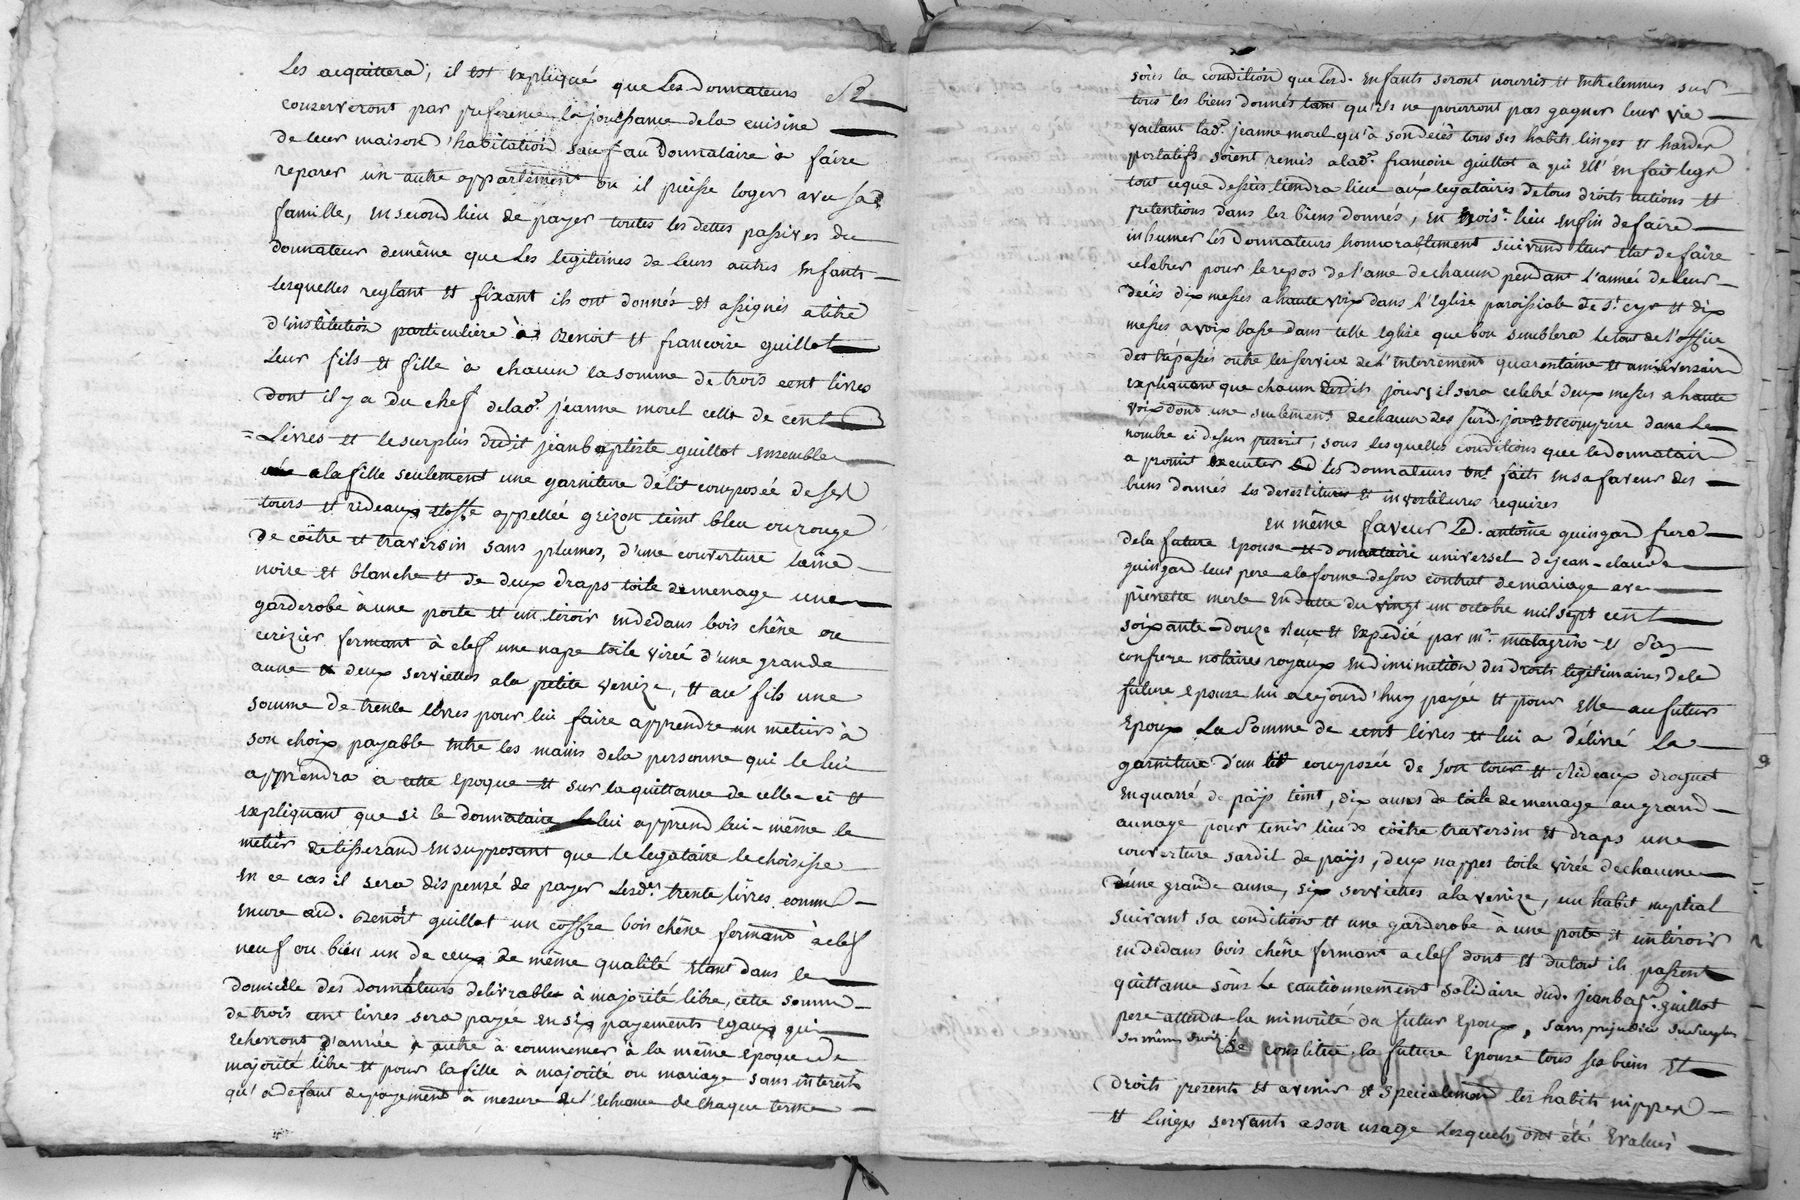 Les acquittera; il est expliqué que les Donnateurs
conserveront par preference la jouissance de la cuisine
de leur maison d'habitation sauf au Donnataire a faire
reparer un autre appartement ou il puisse loger avec sa
famille, en second lieu de payer toutes les dettes passives du
donnateur demême que les legitimes de leurs autres enfants
lesquelles reglant et fixant ils ont donnés et assignés a titre
d'institution particuliere à Benoit et francoise guillot
leur fils et fille à chacun la somme de trois cent livres
dont il y a du chef de lad.e jeanne morel celle de cent
Livres et le surplus dudit jean baptiste guillot ensemble
a la fille seulement une garniture de lit composée de ses
tours et rideaux etoffe appellée grizon teint bleu ou rouge
de coître et traversin sans plumes, d'une couverture laine
noire et blanche et de deux draps toile de menage une
garderobe à une porte et un tiroir en dedans bois chêne ou
cerizier fermant à clef une nape toile virée d'une grande
aune et deux serviettes a la petite venize, et au fils une
somme de trente livres pour lui faire apprendre un metier à
son choix payable entre les mains de la personne qui le lui
apprendra a cette epoque et sur la quittance de celle ci et
expliquant que si le donnataire lui apprend lui-même le
metier de tisserand en supposant que le legataire le choisisse
en ce cas il sera dispensé de payer lesd.es trente livres, comme
encore aud. Benoit guillot un coffre bois chêne fermant à clef
neuf ou bien un de ceux de même qualité etant dans le
domicile des donnateurs delivrable à majorité libre, cette somme
de trois cent livres sera payée en six payements egaux qui
echerront d'année a autre à commencer à la même epoque de
majorité libre et pour la fille à majorité ou mariage sans interets
qu'a defaut de payement à mesure de l'echeance de chaque terme
sous la condition que lesd. enfants seront nourris et entretennus sur
tous les biens donnés tant qu'ils ne pourront pas gagner leur vie
voulant lad.e jeanne morel qu'à son decès tous ses habits linges et hardes
portatifs soient remis a lad.e francoise guillot a qui elle en fait legs
tout ce que dessus tiendra lieu aux legataires de tous droits actions et
pretentions dans les biens donnés, en trois.e lieu enfin de faire
inhumer les donnateurs honnorablement suivant leur etat de faire
celebrer pour le repos de l'ame de chacun pendant l'année de leur
decès dix messes a haute voix dans l'Eglise paroissiale de St cyr et dix
messes a voix basse dans telle Eglise que bon semblera le tout de l'office
des trépassés outre les services de l'enterrement quarentaine et anniversaire
expliquant que chacun desdits jours il sera celebré deux messes a haute
voix dont une seulement de chacun des susd. jours est comprise dans le
nombre ci dessus prescrit, sous lesquelles conditions que le donnataire
a promit executer les donnateurs ont faits en sa faveur des
biens donnés les devestitures et investitures requises
En même faveur Led. antoine guingard frere
de la future epouse et donnataire universel de jean-claude
guingard leur pere a la forme de son contrat de mariage avec
pierrette merle en datte du vingt un octobre mil sept cent
soixante-douze reçu et expedié par me matagrin et son
confrere notaires royaux en diminution des droits legitimaires de la
future epouse lui a cejourd'huy payée et pour elle au futur
epoux la somme de cent livres et lui a délivré la
garniture d'un lit composée de son tour et rideaux droguet
enquarré de païs teint, dix aunes de toile de menage au grand
aunage pour tenir lieu de coître traversin et draps une
couverture sardit de païs, deux nappes toile virée de chacune
d'une grande aune, six serviettes a la venize, un habit nuptial
suivant sa condition et une garderobe à une porte et un tiroir
en dedans bois chêne fermant a clef dont et du tout ils passent
quittance sous le cautionnement solidaire dud. jean bap.te guillot
pere attendu la minorité du futur epoux, sans prejudice du surplus
des mêmes droits Se constitue la future epouse tous ses biens et
droits presents et avenir et specialement les habits nippes
et linges servants a son usage lesquels ont été evalués